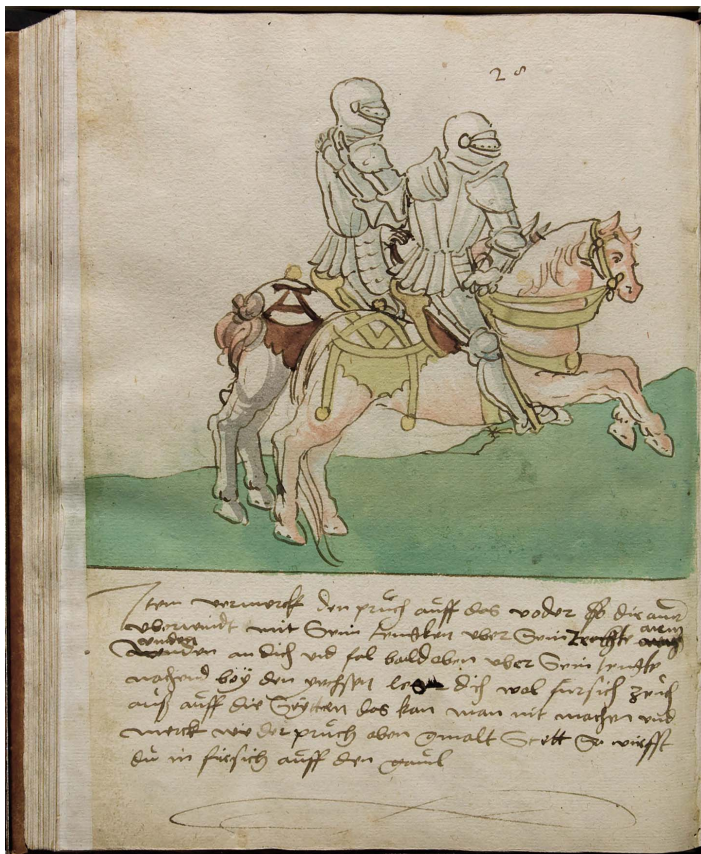 28
Item vermerckh den pruch auff das voder Ob dir ainer
uberwindt mit Sein tencken uber Sein rechte arm
winden
an dich vnd fal bald oben uber Sein tencke
nahend bÿ den vechsen leg dich wol fursich zeuch
auß auff die Seÿtten das kan man nit machen vnd
merck wie der pruch oben gmalt Stett So wirfft
du in fursich auff den gaul